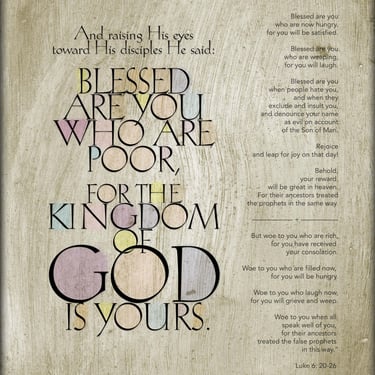 And raising His eyes
toward His disciples He said:
BLESSED
ARE YOU
WHO ARE
POOR,
FOR THE
KINGDOM
OF
GOD
IS YOURS.
Blessed are you
who are now hungry,
for you will be satisfied.
Blessed are you
who are weeping,
for you will laugh.
Blessed are you
when people hate you,
and when they
exclude and insult you,
and denounce your name
as evil on account
of the Son of Man.
Rejoice
and leap for joy on that day!
Behold,
your reward,
will be great in heaven.
For their ancestors treated
the prophets in the same way.
But woe to you who are rich,
for you have received
your consolation.
Woe to you who are filled now,
for you will be hungry.
Woe to you who laugh now,
for you will grieve and weep.
Woe to you when all
speak well of you,
for their ancestors
treated the false prophets
in this way."
Luke 6: 20-26